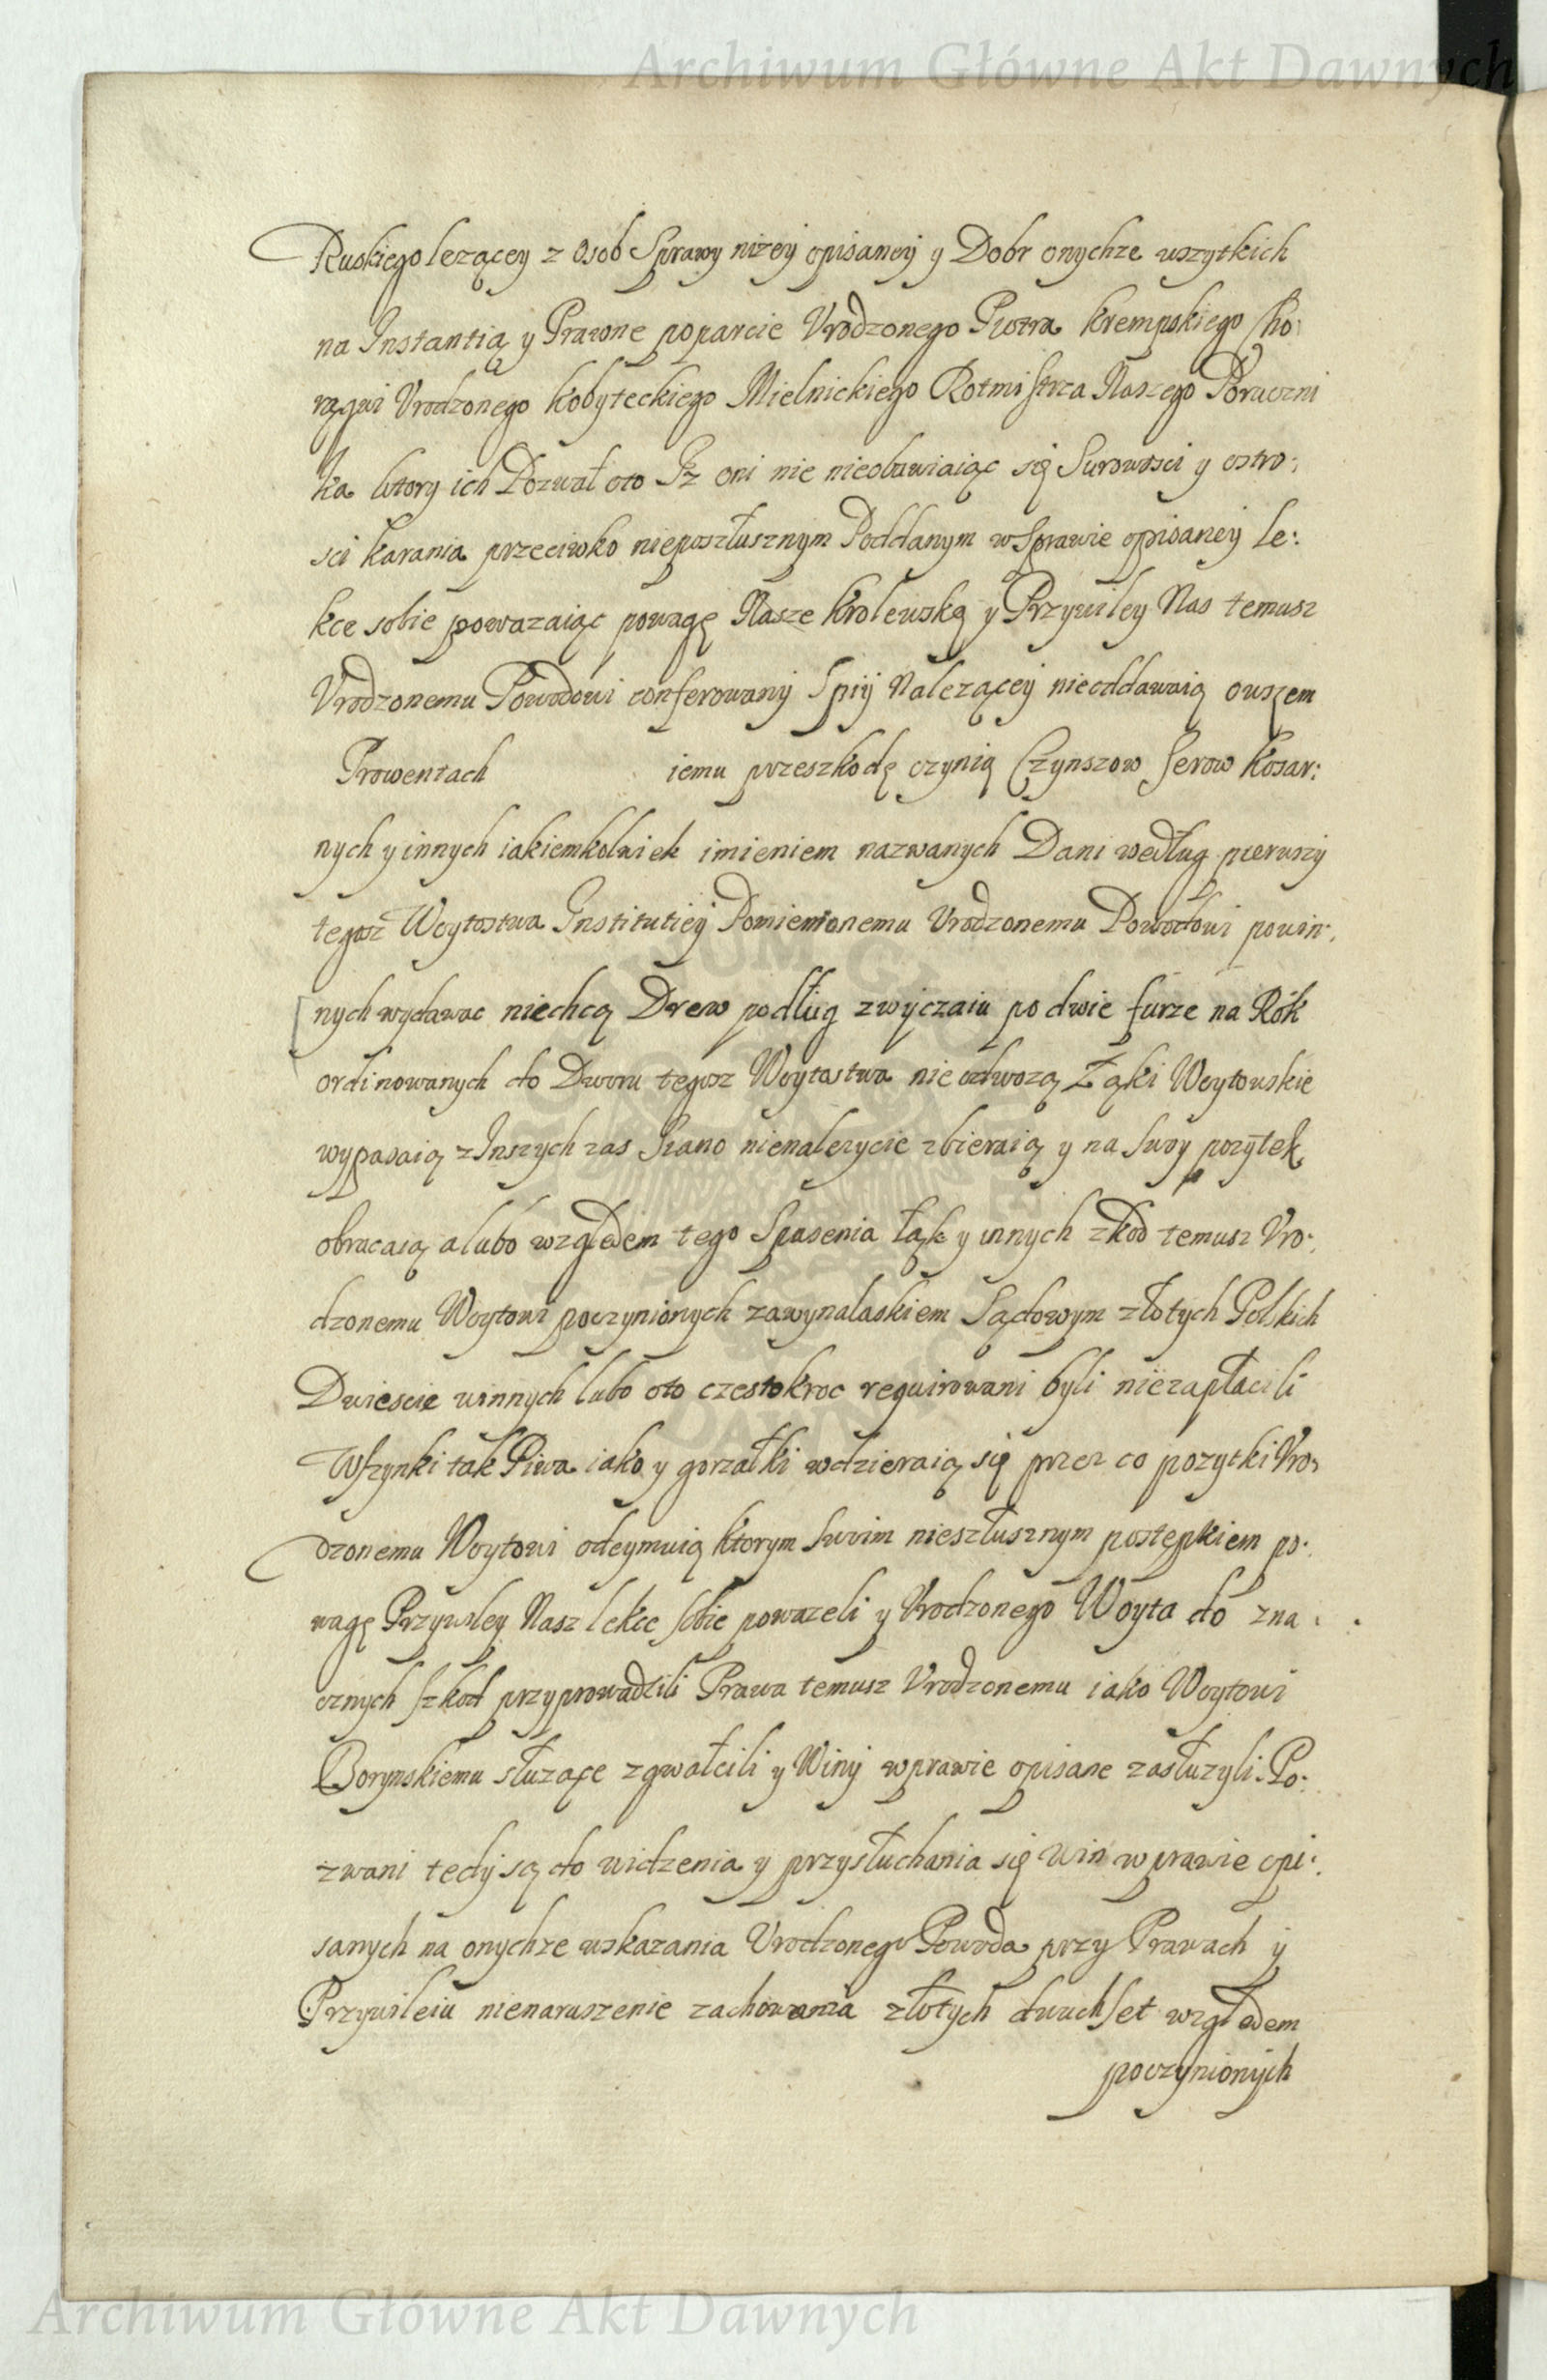 Archiwum Główne Akt Dawnych
Ruskiego lezącey z Osob Sprawy nizey opisaney y Dobr onychze wszytkich
na Instantią y Prawne poparcie Vrodzonego Piotra Krempskiego Cho:
rągwi Vrodzonego Kobyteckiego Mielnickiego Rotmistrza Naszego Poruczni
ka ktory ich Pozwał oto Iz oni nie nieobawiaiąc się Surowosci y ostro:
sci karania przeciwko nieposzłusznym Poddanym w Sprawie opisaney Le:
kce sobie powazaiąc powagę Nasze Krolewską y Przywiley Nas temusz
Vrodzonemu Powodowi conferowany Spij Nalezącey nieoddawaią owszem
Prowentach iemu przeszkodę czynią Czynszow Serow Kosar:
nych y innych iakiemkolwiek imieniem nazwanych Dani według pierwszy
tegosz Woytostwa Institutiey Pomienionemu Vrodzonemu Powodowi powin:
nych wydawac niechcą Drew podług zwyczaiu po dwie furze na Rok
ordinowanych do Dworu tegosz Woytostwa nie odwozą Łąki Woytowskie
wypasaią z Inszych zas Siano nienalezycie zbieraią y na Swoy pozytek
obracaią alubo względem tego Spasenia łąk y innych zkod temusz Vro:
dzonemu Woytowi poczynionych zawynalaskiem Sądowym złotych Polskich
Dwiescie winnych lubo oto czestokroc requirowani byli niezapłacili
Wszynki tak Piwa iako y gorzałki wdzieraią się przez co pozytki Vro:
dzonemu Woytowi odeymuią ktorym Swoim nieszłusznym postępkiem po:
wagę Przywiley Nasz lekce sobie powazeli y Vrodzonego Woyta do zna:
cznych szkod przyprowadzili Prawa temusz Vrodzonemu iako Woytowi
Borynskiemu słuzące zgwałcili y Winy w prawie opisane zasłuzyli. Po:
zwani tedy są do widzenia y przysłuchania się win w prawie opi:
sanych na onychze wskazania Vrodzonego Powoda przy Prawach y
Przywileiu nienaruszenie zachowania złotych dwuchset względem
poczynionych
Archiwum Główne Akt Dawnych